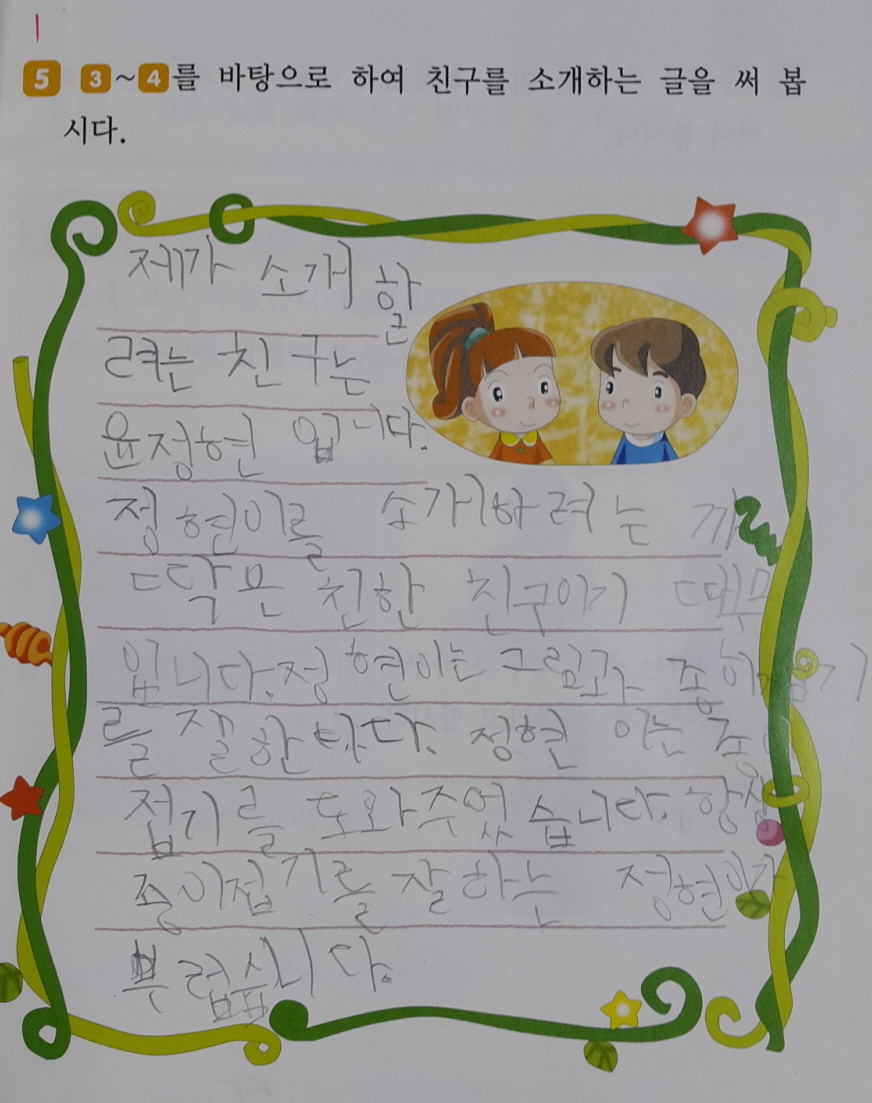 1
5 3~4를 바탕으로 하여 친구를 소개하는 글을 써 봅
시다.
제가 소개 할
려는 친구는
윤정현 입니다.
정현이를 소개하려는 까
닥은 친한 친구이기 때무
입니다. 정현이는 그림과 종이접기
를 잘 한 니다. 정현 이는 종이
접기를 도와주었습니다. 항상
종이접기를 잘하는 정현이가
부럽습니다.